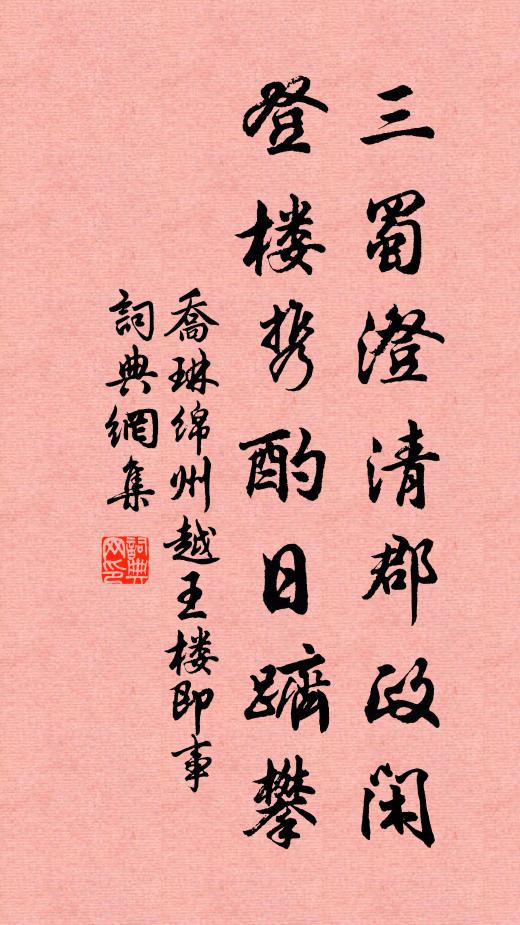 三蜀澄清郡政闲
登楼携酌日跻攀
喬琳绵州越王楼即事
詞典網集
詞典网印